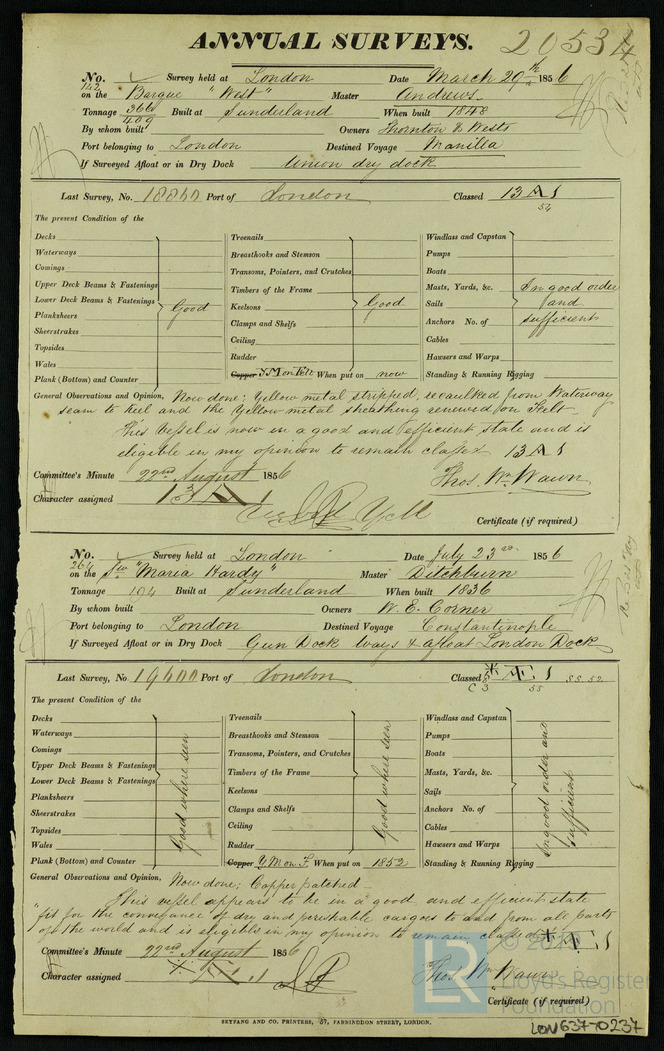 ANNUAL SURVEYS.
20534
No. 142 Survey held at London Date March 29th 1856
on the Barque "West" Master Andrews
Tonnage 366 409 Built at Sunderland When built 1848
By whom built Owners Thornton & Wests
Port belonging to London Destined Voyage Manilla
If Surveyed Afloat or in Dry Dock Union dry dock
Last Survey, No. 18860 Port of London Classed 13 A 1
54
The present Condition of the
Decks
Waterways
Comings
Upper Deck Beams & Fastenings
Lower Deck Beams & Fastenings
Planksheers
Sheerstrakes
Topsides
Wales
Plank (Bottom) and Counter
Good
Treenails
Breasthooks and Stemson
Transoms, Pointers, and Crutches
Timbers of the Frame
Keelsons
Clamps and Shelfs
Ceiling
Rudder
Good
Copper Y. M on Felt When put on now
Windlass and Capstan
Pumps
Boats
Masts, Yards, &c.
Sails
Anchors No. of
Cables
Hawsers and Warps
Standing & Running Rigging
In good order
and
sufficient
General Observations and Opinion, Now done: Yellow metal stripped, recaulked from Waterway
seam to keel and the Yellow metal sheathing renewed on Felt
This Vessel is now in a good and efficient state and is
eligible in my opinion to remain classed 13 A 1
Committee's Minute 22nd August 1856 Thos. Wm. Wawn
Character assigned 13 A 1
Certificate (if required)
No. 264 Survey held at London Date July 23rd 1856
on the "Maria Hardy" Master Ditchburn
Tonnage 194 Built at Sunderland When built 1836
By whom built Owners W. E. Corner
Port belonging to London Destined Voyage Constantinople
If Surveyed Afloat or in Dry Dock Gun Dock Ways & afloat London Dock
Last Survey, No. 19400 Port of London Classed Æ 1
55
The present Condition of the
Decks
Waterways
Comings
Upper Deck Beams & Fastenings
Lower Deck Beams & Fastenings
Planksheers
Sheerstrakes
Topsides
Wales
Plank (Bottom) and Counter
Good where seen
Treenails
Breasthooks and Stemson
Transoms, Pointers, and Crutches
Timbers of the Frame
Keelsons
Clamps and Shelfs
Ceiling
Rudder
Good where seen
Copper Y. M on F. When put on 1852
Windlass and Capstan
Pumps
Boats
Masts, Yards, &c.
Sails
Anchors No. of
Cables
Hawsers and Warps
Standing & Running Rigging
In good order and
sufficient
General Observations and Opinion, Now done; Copper patched
This vessel appears to be in a good and efficient state
"fit for the conveyance of dry and perishable cargoes to and from all parts
of the world and is eligible in my opinion to remain classed Æ 1
Committee's Minute 22nd August 1856
Character assigned Æ 1 Thos. Wm. Wawn
Certificate (if required)
SEYFANG AND CO. PRINTERS, 57, FARRINGDON STREET, LONDON.
LR
Lloyd's Register
Foundation
LON637-0237